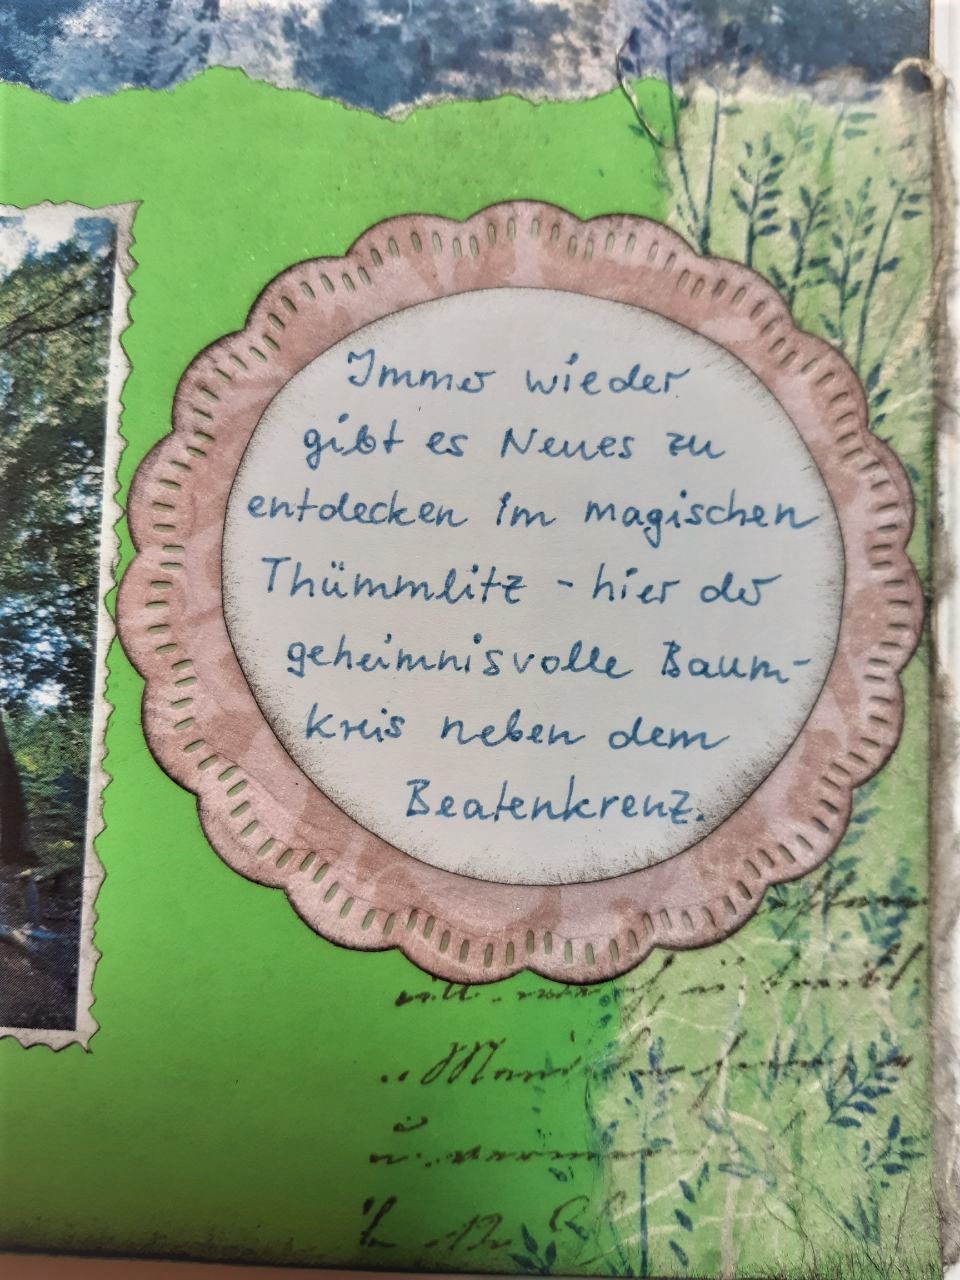 Immer wieder
gibt es Neues zu
entdecken im magischen
Thümmlitz - hier der
geheimnisvolle Baum-
kreis neben dem
Beatenkreuz.